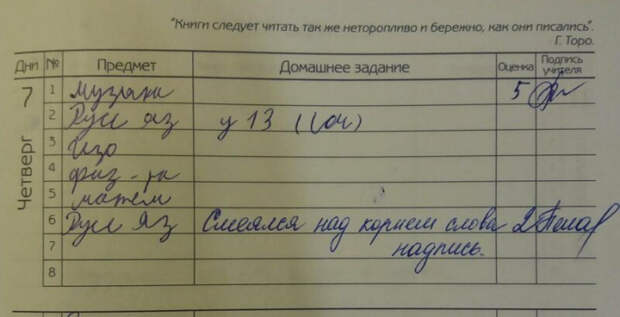 "Книги следует читать так же неторопливо и бережно, как они писались".
Г. Торо.
Дни № Предмет Домашнее задание Оценка Подпись учителя
7 Четверг
1 музыка 5
2 Русс яз у 13
3 Изо
4 физ-ра
5 матем
6 Русс Яз Смеялся над корнем слова 2
7 надпись.
8